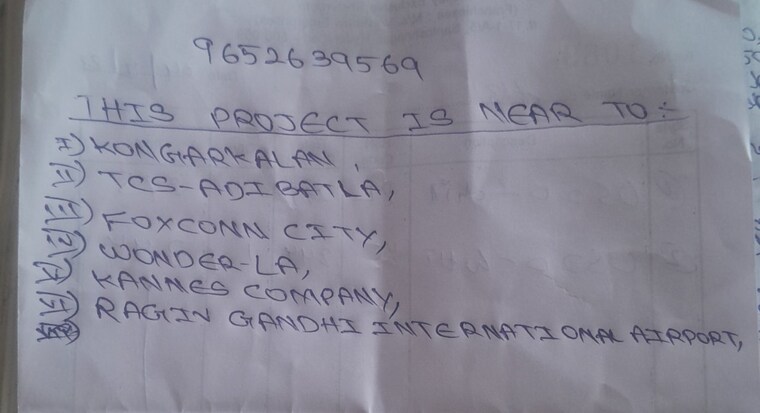 9652639569
THIS PROJECT IS NEAR TO:-
I) KONGARKALAN,
II) TCS-ADIBATLA,
III) FOXCONN CITY,
IV) WONDER-LA,
V) KANNES COMPANY,
RAGIV GANDHI INTERNATIONAL AIRPORT,